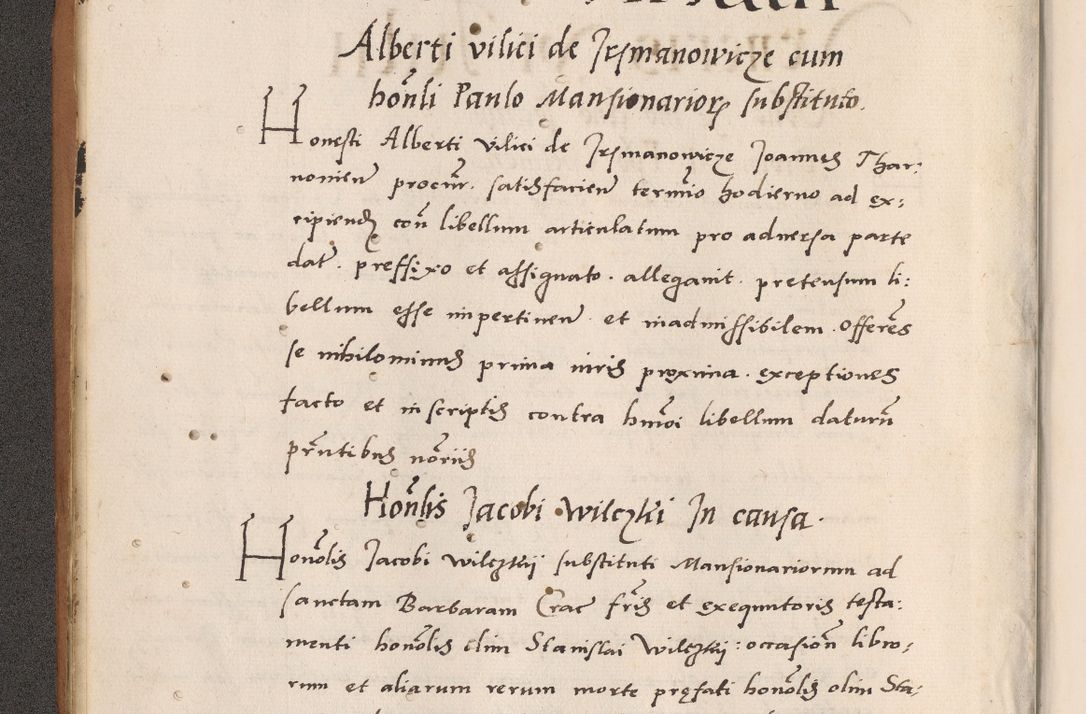 Alberti vilici de Jrzmanowicze cum
honli Paulo Mansionarior substituto.
Honesti Alberti vilici de Jrzmanowicze Joannes Thar:
nonien procur. satisfacien termio hodierno ad ex:
cipiend con libellum articulatum pro adversa parte
dat. preffixo et assignato. allegavit. pretensum li:
bellum esse impertinen. et inadmissibilem. offeres
se nihilominus prima iuris proxima. exceptiones
facto et in scriptis contra hmoi libellum daturu
prntibus noriis
Honlis Jacobi Wilczki In causa.
Honolis Jacobi Wilczkij substituti Mansionariorum ad
sanctam Barbaram Crac fris et exequutoris testa:
menti honolis olim Stanislai Wilczkij: occasion libro,
rum et aliarum rerum morte prefati honolis olim Sta,